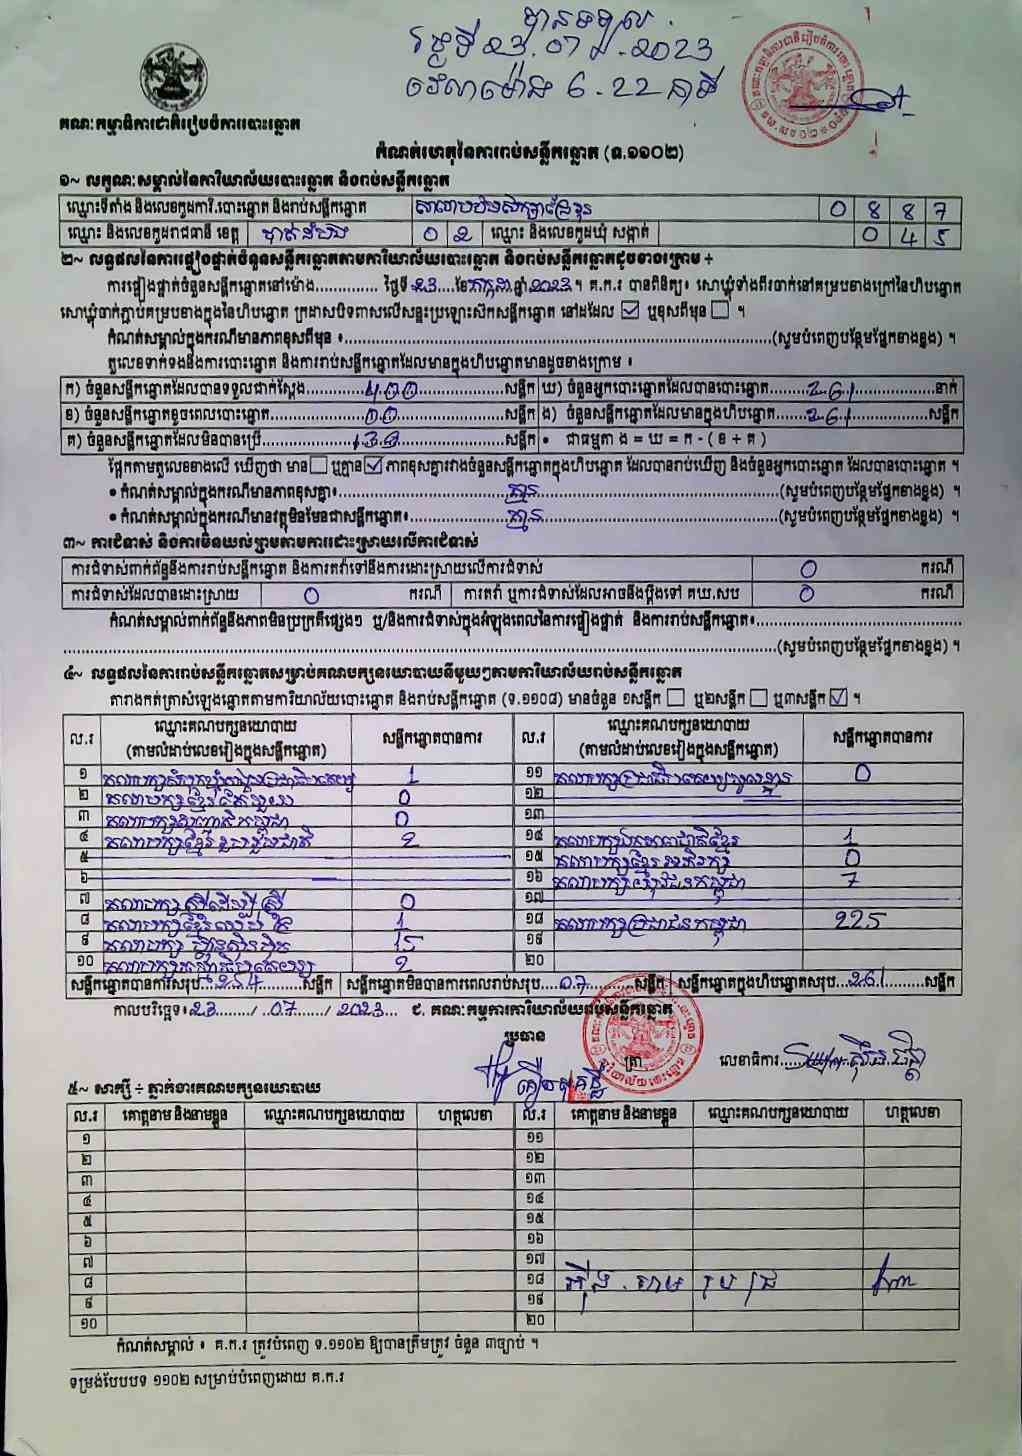 បានទទួល
ថ្ងៃទី 23.07.2023
វេលាម៉ោង 6.22 នាទី
គណៈកម្មាធិការជាតិរៀបចំការបោះឆ្នោត
កំណត់ហេតុនៃការរាប់សន្លឹកឆ្នោត (ទ.១១០២)
១~ លក្ខណៈសម្គាល់នៃការិយាល័យបោះឆ្នោត និងរាប់សន្លឹកឆ្នោត
ឈ្មោះទីតាំង និងលេខកូដការិ.បោះឆ្នោត និងរាប់សន្លឹកឆ្នោត 0 8 8 7
ឈ្មោះ និងលេខកូដរាជធានី ខេត្ត បាត់ដំបង 0 2 ឈ្មោះ និងលេខកូដឃុំ សង្កាត់ 0 4 5
២~ លទ្ធផលនៃការផ្ទៀងផ្ទាត់ចំនួនសន្លឹកឆ្នោតតាមការិយាល័យបោះឆ្នោត និងរាប់សន្លឹកឆ្នោតដូចខាងក្រោម ÷
ការផ្ទៀងផ្ទាត់ចំនួនសន្លឹកឆ្នោតនៅម៉ោង.............. ថ្ងៃទី 23....ខែ កក្កដា ឆ្នាំ 2023។ គ.ក.រ បានពិនិត្យ៖ សោឃ្លុំទាំងពីរចាក់នៅគម្របខាងក្រៅនៃហិបឆ្នោត
សោឃ្លុំចាក់ភ្ជាប់គម្របខាងក្នុងនៃហិបឆ្នោត ក្រដាសបិទពាសលើសន្ទះប្រឡោះស៊កសន្លឹកឆ្នោត នៅដដែល ☑ ឬខុសពីមុន ☐ ។
កំណត់សម្គាល់ក្នុងករណីមានភាពខុសពីមុន ៖..............(សូមបំពេញបន្ថែមផ្នែកខាងខ្នង) ។
តួលេខទាក់ទងនឹងការបោះឆ្នោត និងការរាប់សន្លឹកឆ្នោតដែលមានក្នុងហិបឆ្នោតមានដូចខាងក្រោម ៖
ក) ចំនួនសន្លឹកឆ្នោតដែលបានទទួលជាក់ស្តែង..........400..........សន្លឹក ឃ) ចំនួនអ្នកបោះឆ្នោតដែលបានបោះឆ្នោត......261..........នាក់
ខ) ចំនួនសន្លឹកឆ្នោតខូចពេលបោះឆ្នោត..........00..........សន្លឹក ង) ចំនួនសន្លឹកឆ្នោតដែលមានក្នុងហិបឆ្នោត......261..........សន្លឹក
គ) ចំនួនសន្លឹកឆ្នោតដែលមិនបានប្រើ..........139..........សន្លឹក • ជាធម្មតា ង = ឃ = ក - ( ខ + គ )
ផ្អែកតាមតួលេខខាងលើ ឃើញថា មាន ☐ ឬគ្មាន ☑ ភាពខុសគ្នារវាងចំនួនសន្លឹកឆ្នោតក្នុងហិបឆ្នោត ដែលបានរាប់ឃើញ និងចំនួនអ្នកបោះឆ្នោត ដែលបានបោះឆ្នោត ។
• កំណត់សម្គាល់ក្នុងករណីមានភាពខុសគ្នា៖..........គ្មាន..........(សូមបំពេញបន្ថែមផ្នែកខាងខ្នង) ។
• កំណត់សម្គាល់ក្នុងករណីមានវត្ថុមិនមែនជាសន្លឹកឆ្នោត៖..........គ្មាន..........(សូមបំពេញបន្ថែមផ្នែកខាងខ្នង) ។
៣~ ការជំទាស់ និងការមិនយល់ព្រមតាមការដោះស្រាយលើការជំទាស់
ការជំទាស់ពាក់ព័ន្ធនឹងការរាប់សន្លឹកឆ្នោត និងការតវ៉ាទៅនឹងការដោះស្រាយលើការជំទាស់ 0 ករណី
ការជំទាស់ដែលបានដោះស្រាយ 0 ករណី ការតវ៉ា ឬការជំទាស់ដែលអាចនឹងប្តឹងទៅ គឃ.សប 0 ករណី
កំណត់សម្គាល់ពាក់ព័ន្ធនឹងភាពមិនប្រក្រតីផ្សេងៗ ឬ/និងការជំទាស់ក្នុងអំឡុងពេលនៃការផ្ទៀងផ្ទាត់ និងការរាប់សន្លឹកឆ្នោត៖..............
..............(សូមបំពេញបន្ថែមផ្នែកខាងខ្នង) ។
៤~ លទ្ធផលនៃការរាប់សន្លឹកឆ្នោតសម្រាប់គណបក្សនយោបាយនីមួយៗតាមការិយាល័យរាប់សន្លឹកឆ្នោត
តារាងកត់ត្រាសំឡេងឆ្នោតតាមការិយាល័យបោះឆ្នោត និងរាប់សន្លឹកឆ្នោត (ទ.១១០៨) មានចំនួន ១សន្លឹក ☐ ឬ២សន្លឹក ☐ ឬ៣សន្លឹក ☑ ។
ល.រ ឈ្មោះគណបក្សនយោបាយ (តាមលំដាប់លេខរៀងក្នុងសន្លឹកឆ្នោត) សន្លឹកឆ្នោតបានការ ល.រ ឈ្មោះគណបក្សនយោបាយ (តាមលំដាប់លេខរៀងក្នុងសន្លឹកឆ្នោត) សន្លឹកឆ្នោតបានការ
១ គណបក្សសំបុកឃ្មុំសង្គមប្រជាធិបតេយ្យ 1 ១១ 0
២ គណបក្សខ្មែរ 0 ១២
៣ គណបក្ស 0 ១៣
៤ គណបក្សខ្មែររួបរួមជាតិ 2 ១៤ គណបក្ស 1
៥ ១៥ គណបក្សខ្មែរអភិរក្ស 0
៦ ១៦ គណបក្សយុវជនកម្ពុជា 7
៧ គណបក្សស្ត្រីដើម្បីស្ត្រី 0 ១៧
៨ គណបក្ស 1 ១៨ គណបក្សប្រជាជនកម្ពុជា 225
៩ គណបក្សហ៊្វុនស៊ិនប៉ិច 15 ១៩
១០ គណបក្ស 2 ២០
សន្លឹកឆ្នោតបានការសរុប...254.......សន្លឹក សន្លឹកឆ្នោតមិនបានការពេលរាប់សរុប....07.......សន្លឹក សន្លឹកឆ្នោតក្នុងហិបឆ្នោតសរុប...261.......សន្លឹក
កាលបរិច្ឆេទ៖23......../...07....../ 2023... ជ. គណៈកម្មការការិយាល័យរាប់សន្លឹកឆ្នោត
ប្រធាន
ត្រា លេខាធិការ
៥~ សាក្សី ÷ ភ្នាក់ងារគណបក្សនយោបាយ
ល.រ គោត្តនាម និងនាមខ្លួន ឈ្មោះគណបក្សនយោបាយ ហត្ថលេខា ល.រ គោត្តនាម និងនាមខ្លួន ឈ្មោះគណបក្សនយោបាយ ហត្ថលេខា
១ ១១
២ ១២
៣ ១៣
៤ ១៤
៥ ១៥
៦ ១៦
៧ ១៧
៨ ១៨
៩ ១៩
១០ ២០
កំណត់សម្គាល់ ៖ គ.ក.រ ត្រូវបំពេញ ទ.១១០២ ឱ្យបានត្រឹមត្រូវ ចំនួន ៣ច្បាប់ ។
ទម្រង់បែបបទ ១១០២ សម្រាប់បំពេញដោយ គ.ក.រ